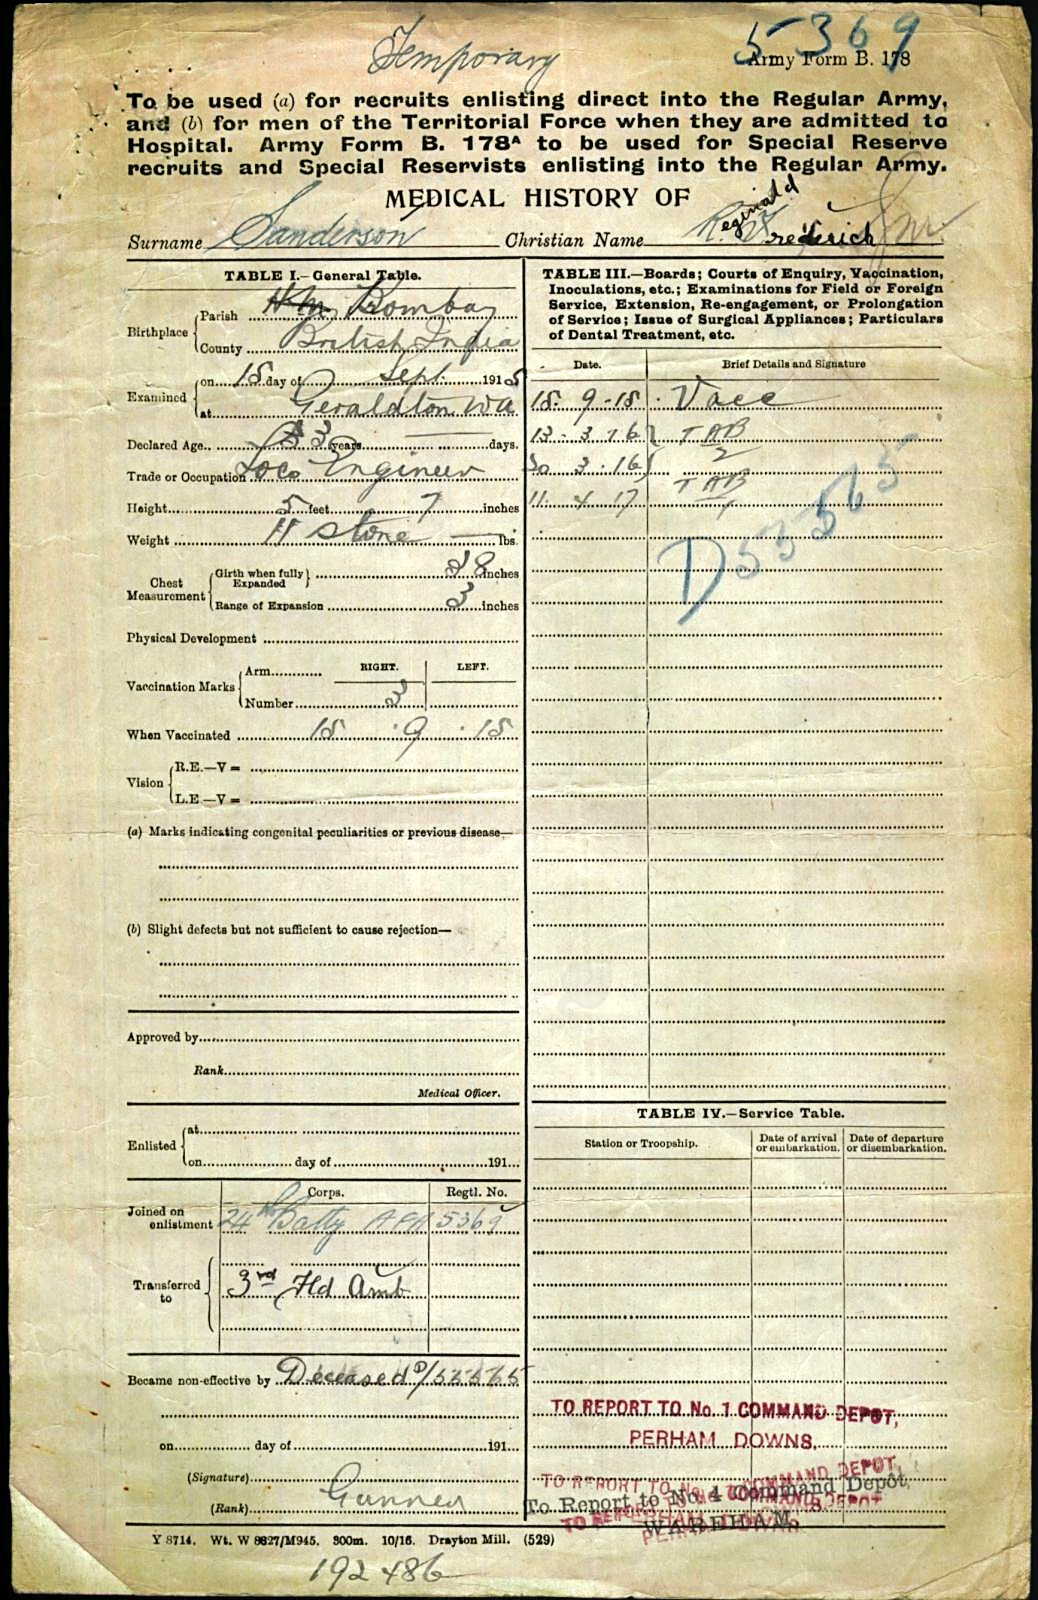 Temporary
5369
Army Form B. 178
To be used (a) for recruits enlisting direct into the Regular Army,
and (b) for men of the Territorial Force when they are admitted to
Hospital. Army Form B. 178A to be used for Special Reserve
recruits and Special Reservists enlisting into the Regular Army.
MEDICAL HISTORY OF
Surname Sanderson Christian Name Reginald Frederich
TABLE I.—General Table.
Birthplace
Parish Bombay
County British India
Examined
on 18 day of Sept. 1915
at Geraldton WA
Declared Age 33 years — days.
Trade or Occupation Loco Engineer
Height 5 feet 7 inches
Weight 11 stone — lbs.
Chest Measurement
Girth when fully Expanded 38 inches
Range of Expansion 3 inches
Physical Development
Vaccination Marks
RIGHT. LEFT.
Arm
Number 3
When Vaccinated 18 . 9 . 15
Vision
R.E.—V =
L.E—V =
(a) Marks indicating congenital peculiarities or previous disease—
(b) Slight defects but not sufficient to cause rejection—
Approved by
Rank
Medical Officer.
Enlisted
at
on day of 191
Corps. Regtl. No.
Joined on enlistment 24th Batty AFA 5369
Transferred to
3rd Fld Amb
Became non-effective by Deceased D/55565
on day of 191
(Signature)
(Rank) Gunner
TABLE III.—Boards; Courts of Enquiry, Vaccination,
Inoculations, etc.; Examinations for Field or Foreign
Service, Extension, Re-engagement, or Prolongation
of Service; Issue of Surgical Appliances; Particulars
of Dental Treatment, etc.
Date. Brief Details and Signature
18. 9 -15 . Vacc
13 - 3 - 16 TAB
30 3 . 16 2
11. 4 17 TAB 1
D55565
TABLE IV.—Service Table.
Station or Troopship. Date of arrival or embarkation. Date of departure or disembarkation.
TO REPORT TO No. 1 COMMAND DEPOT,
PERHAM DOWNS.
TO REPORT TO No. COMMAND DEPOT,
To Report to No. 4 Command Depot,
WAREHAM
Y 8714. Wt. W 8827/M945. 300m. 10/16. Drayton Mill. (529)
192486